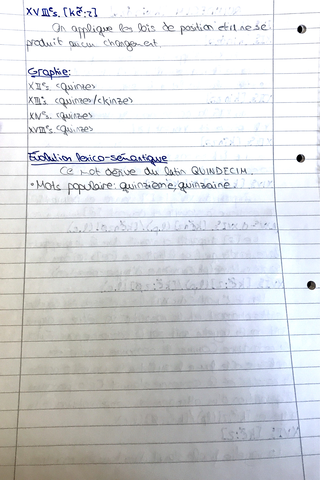 XVIIIᵉs. [kɛ̃:z]
On applique les lois de position et il ne se
produit aucun changement.
Graphie:
XIIᵉs. <quinze>
XIIIᵉs. <quinze>/<kinze>
XIVᵉs. <quinze>
XVIIIᵉs. <quinze>
Évolution lexico-sémantique
Ce mot dérive du latin QUINDECIM.
• Mots populaire: quinzième, quinzaine.